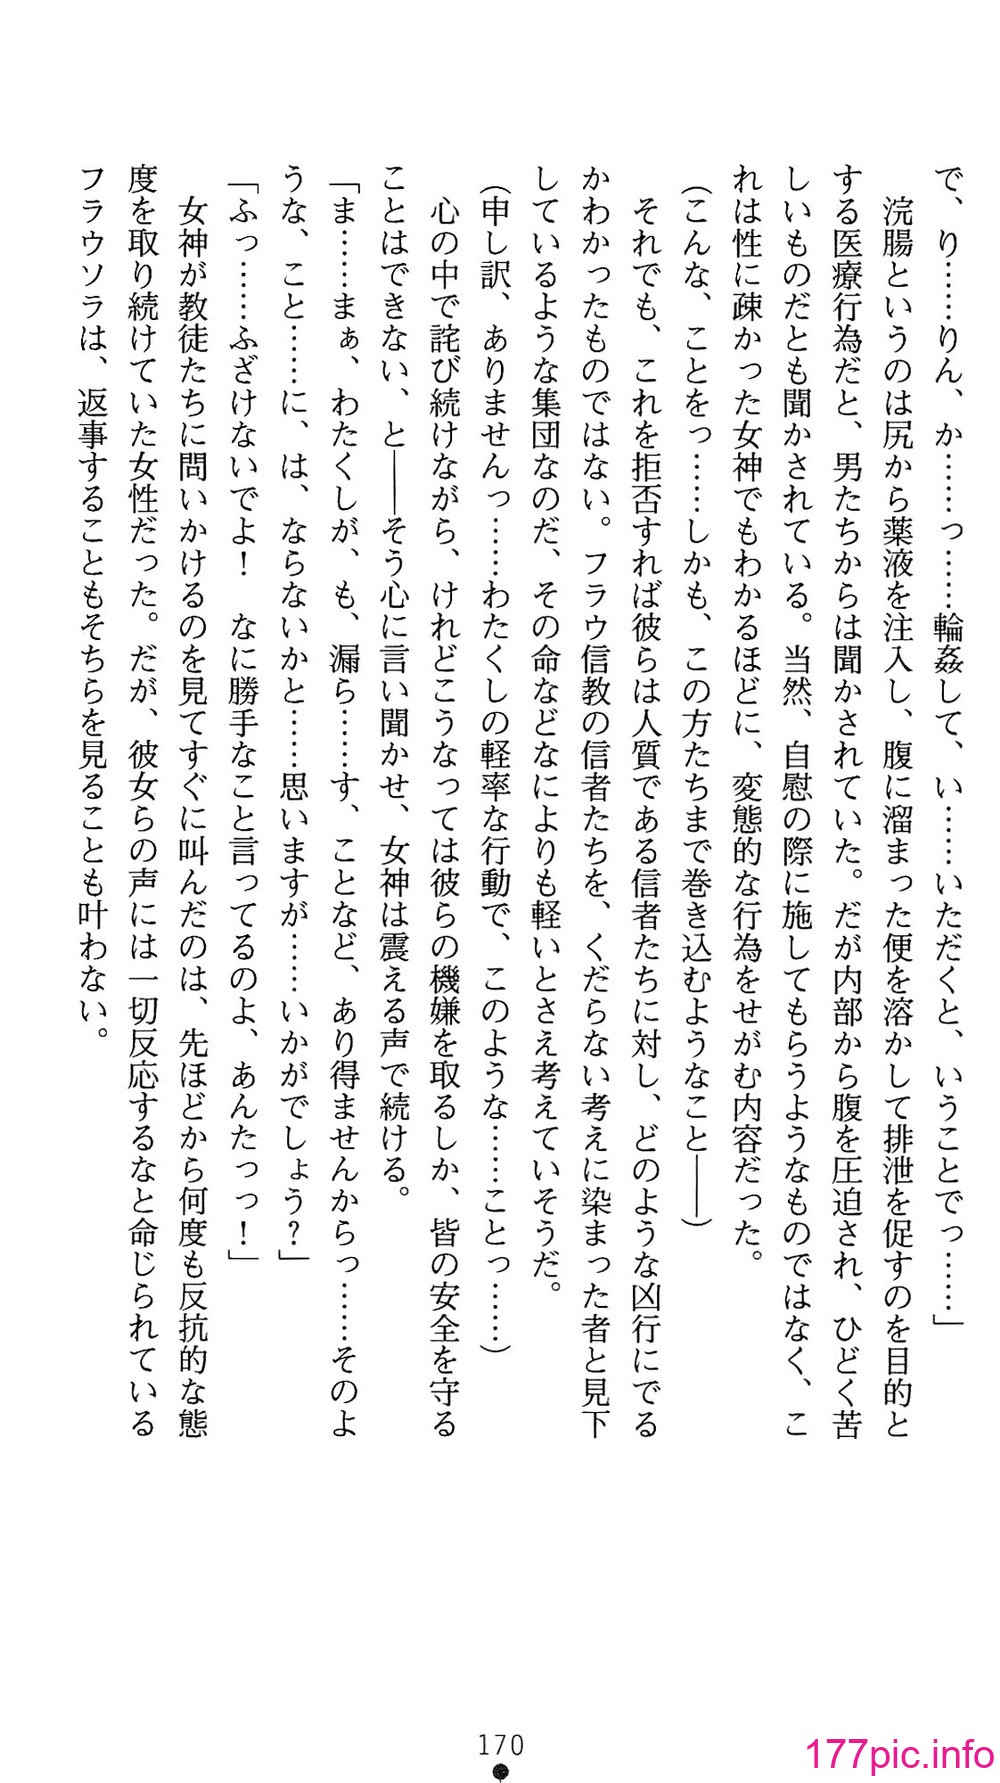 で、り……りん、か……っ……輪姦して、い……いただくと、いうことでっ……」
浣腸というのは尻から薬液を注入し、腹に溜まった便を溶かして排泄を促すのを目的と
する医療行為だと、男たちからは聞かされていた。だが内部から腹を圧迫され、ひどく苦
しいものだとも聞かされている。当然、自慰の際に施してもらうようなものではなく、こ
れは性に疎かった女神でもわかるほどに、変態的な行為をせがむ内容だった。
（こんな、ことをっ……しかも、この方たちまで巻き込むようなこと――）
それでも、これを拒否すれば彼らは人質である信者たちに対し、どのような凶行にでる
かわかったものではない。フラウ信教の信者たちを、くだらない考えに染まった者と見下
しているような集団なのだ、その命などなによりも軽いとさえ考えていそうだ。
（申し訳、ありませんっ……わたくしの軽率な行動で、このような……ことっ……）
心の中で詫び続けながら、けれどこうなっては彼らの機嫌を取るしか、皆の安全を守る
ことはできない、と――そう心に言い聞かせ、女神は震える声で続ける。
「ま……まぁ、わたくしが、も、漏ら……す、ことなど、あり得ませんからっ……そのよ
うな、こと……に、は、ならないかと……思いますが……いかがでしょう？」
「ふっ……ふざけないでよ！　なに勝手なこと言ってるのよ、あんたっっ！」
女神が教徒たちに問いかけるのを見てすぐに叫んだのは、先ほどから何度も反抗的な態
度を取り続けていた女性だった。だが、彼女らの声には一切反応するなと命じられている
フラウソラは、返事することもそちらを見ることも叶わない。
170
177pic.info